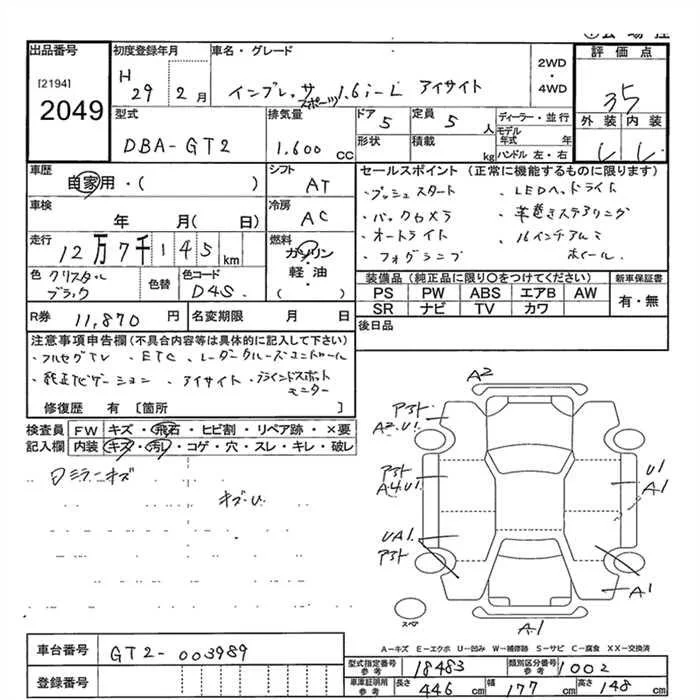 出品番号
[2194]
2049
初度登録年月
H 29 2月
車名・グレード
インプレッサ スポーツ 1.6i-L アイサイト
2WD
・
4WD
評価点
35
外装 内装
型式
DBA-GT2
排気量
1.600 cc
ドア 5
定員 5 人
形状
積載 kg
ディーラー・並行
モデル年式 年
ハンドル 左・右
車歴
自家用・( )
シフト
AT
車検
年 月( 日)
冷房
AC
走行
12万7千145km
燃料
ガソリン
軽油・
( )
色 クリスタルブラック
色替
色コード
D4S
R券 11,870 円
名変期限 月 日
セールスポイント (正常に機能するものに限ります)
・プッシュスタート ・LEDヘッドライト
・バックカメラ ・革巻きステアリング
・オートライト ・16インチアルミホイール
・フォグランプ
装備品 (純正品に限り〇をつけてください)
PS PW ABS エアB AW
SR ナビ TV カワ
新車保証書
有・無
後日品
注意事項申告欄 (不具合内容等は具体的に記入して下さい)
・フルセグTV ・ETC ・レーダークルーズコントロール
・純正ナビゲーション ・アイサイト ・ブラインドスポットモニター
修復歴 有 [箇所 ]
検査員記入欄
FW キズ・飛石・ヒビ割・リペア跡・×要
内装 キズ・汚レ・コゲ・穴・スレ・キレ・破レ
ミラーキズ
キズ・U
A2
アフト
A2.U1
アフト
A4.U1
UA1
アフト
U1
A1
A1
A1
スペア
A-キズ E-エクボ U-凹み W-補修跡 S-サビ C-腐食 XX-交換済
車台番号 GT2-003989
登録番号
型式指定番号 参考 18483
類別区分番号 参考 1002
車庫証明用 参考 長さ 446cm 幅 177cm 高さ 148cm